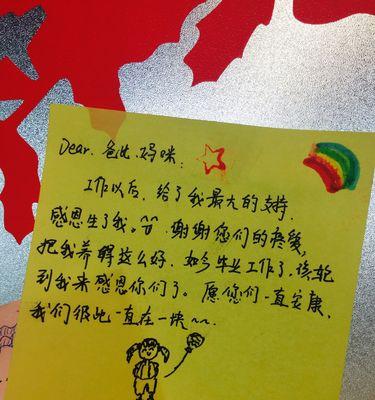 Dear. 爸比.妈咪:
工作以后,给了我最大的支持,
感恩生了我。^^.谢谢您们的疼爱,
把我养这么好.如今毕业工作了,该轮
到我来感恩你们了。愿您们一直安康,
我们彼此一直在一块~~.